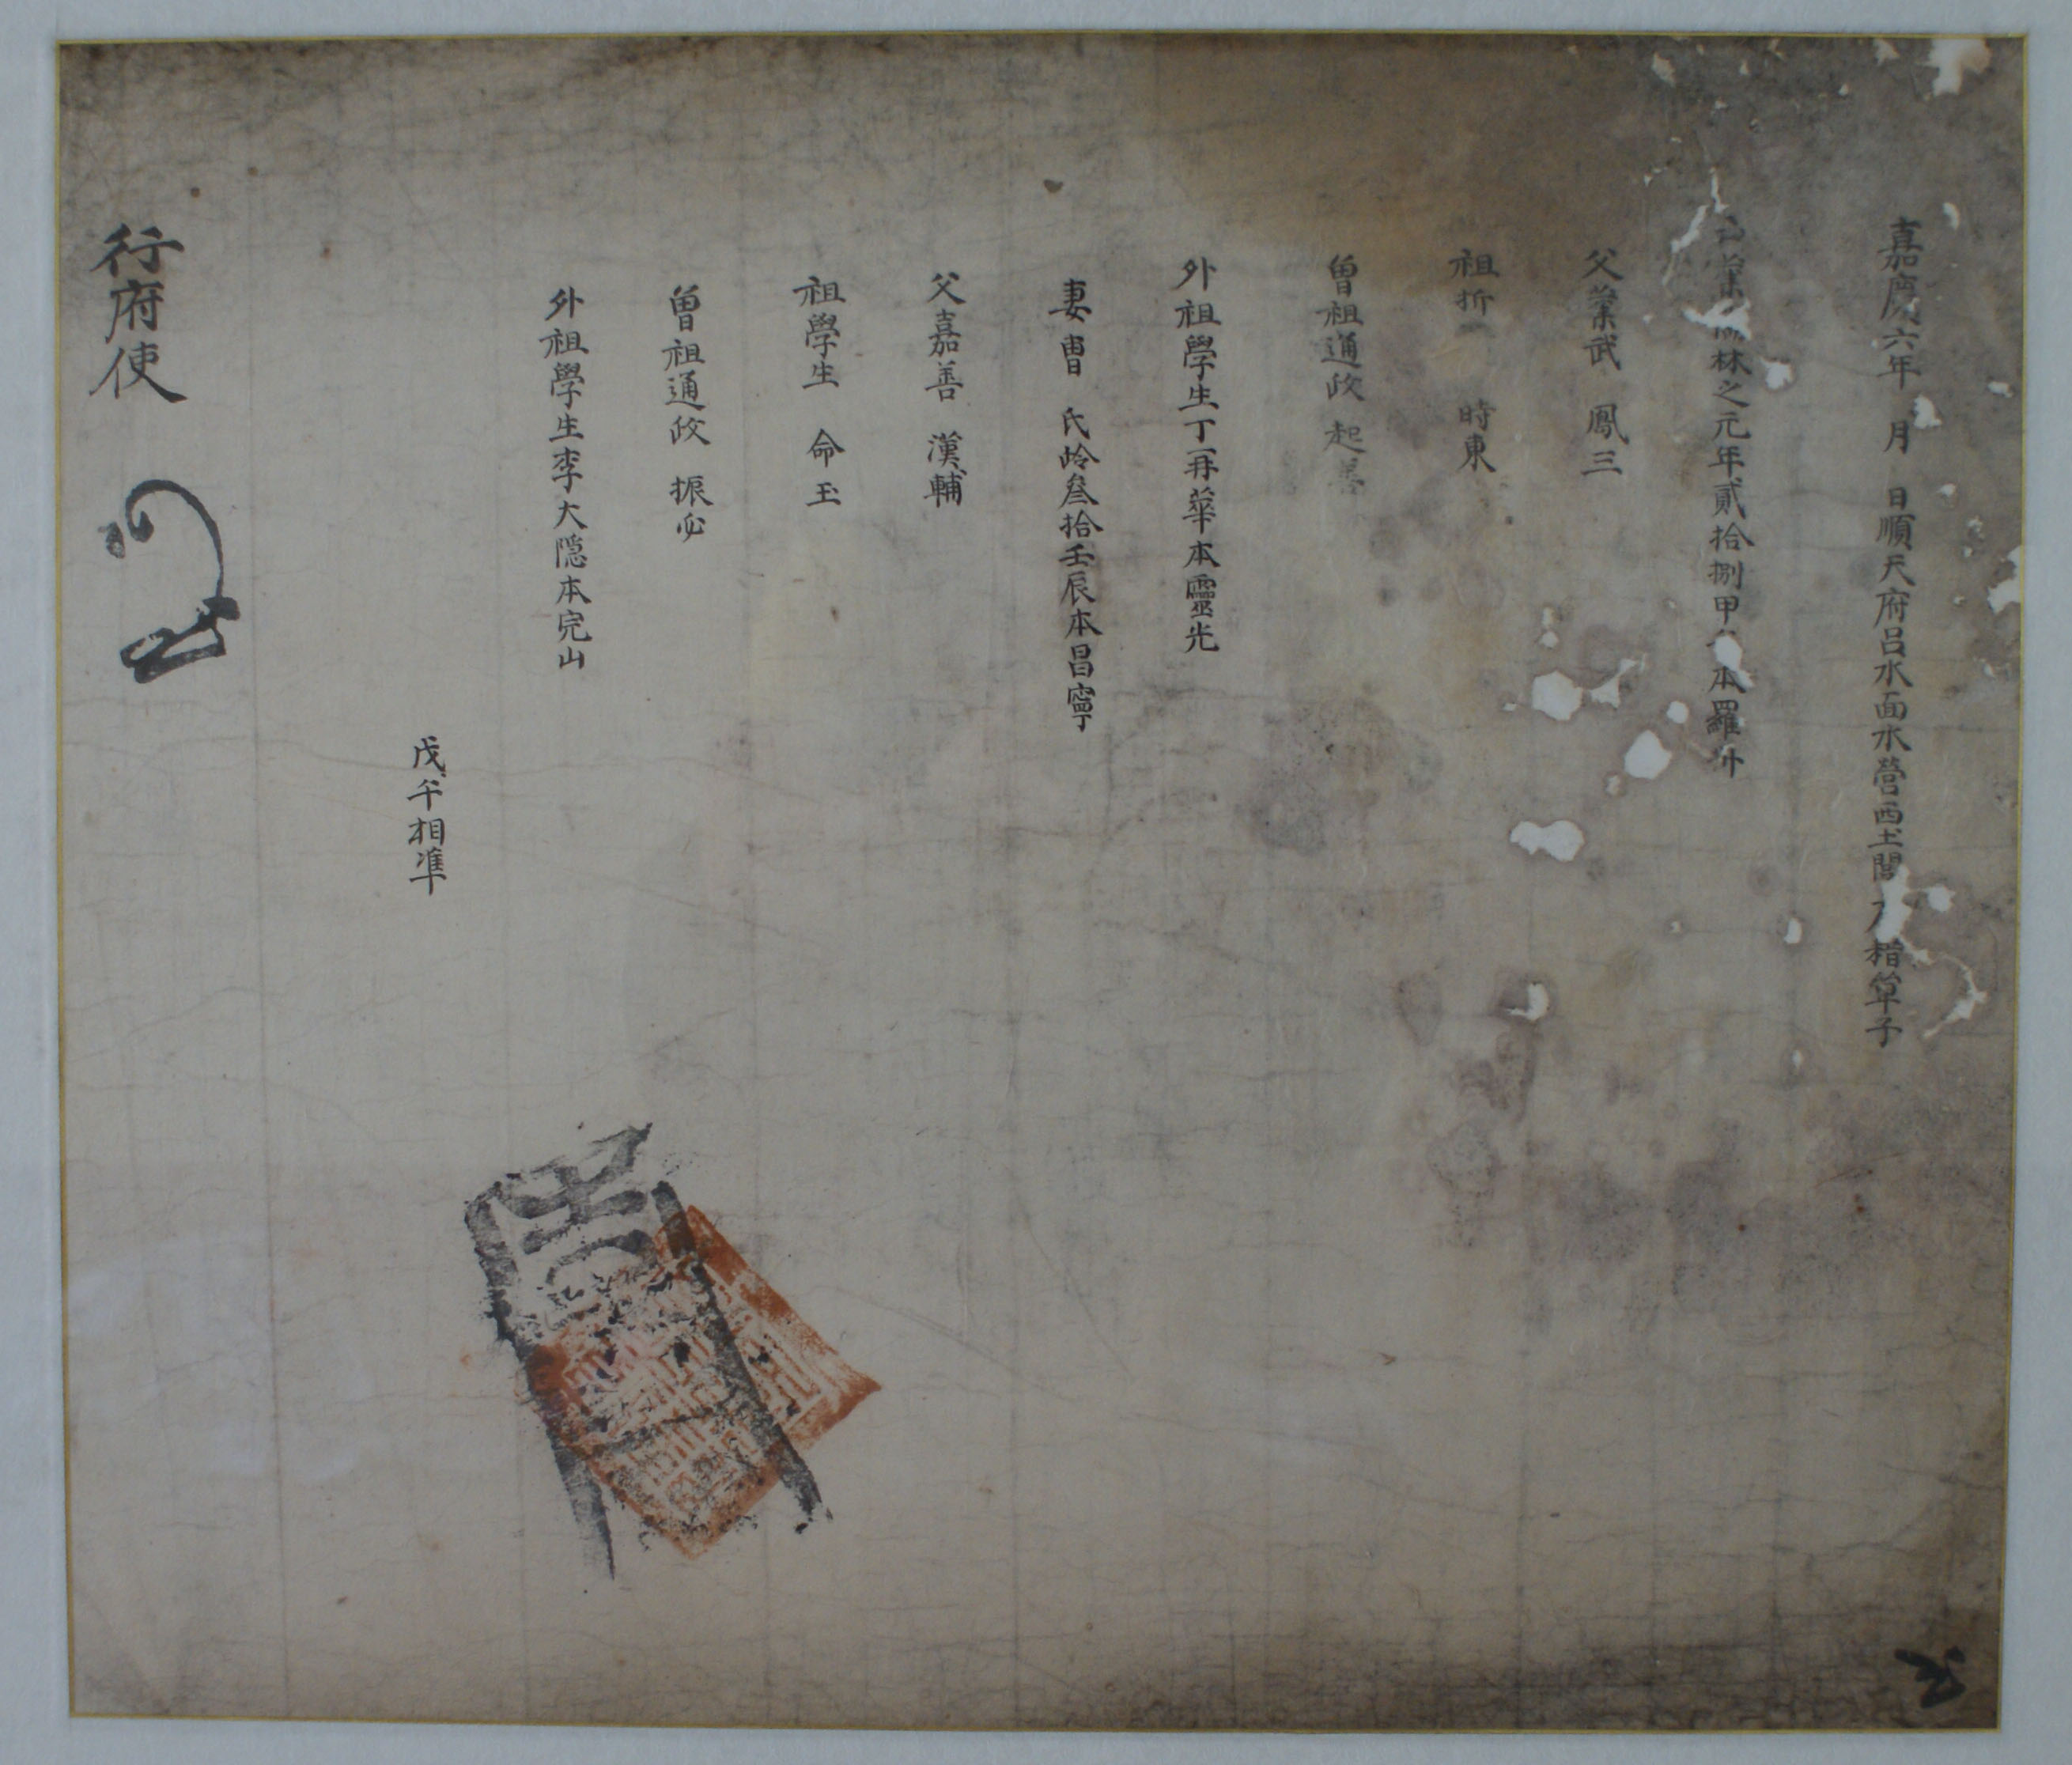 嘉慶六年 月 日順天府呂水面水營西 戶籍單子
業 林之元年貳拾捌甲 本羅州
父業武 鳳三
祖折 時東
曾祖通政 起
外祖學生丁再華本靈光
妻曺 氏岭叄拾壬辰本昌寧
父嘉善 漢輔
祖學生 命玉
曾祖通政 振必
外祖學生李大隱本完山
戊午相準
行府使